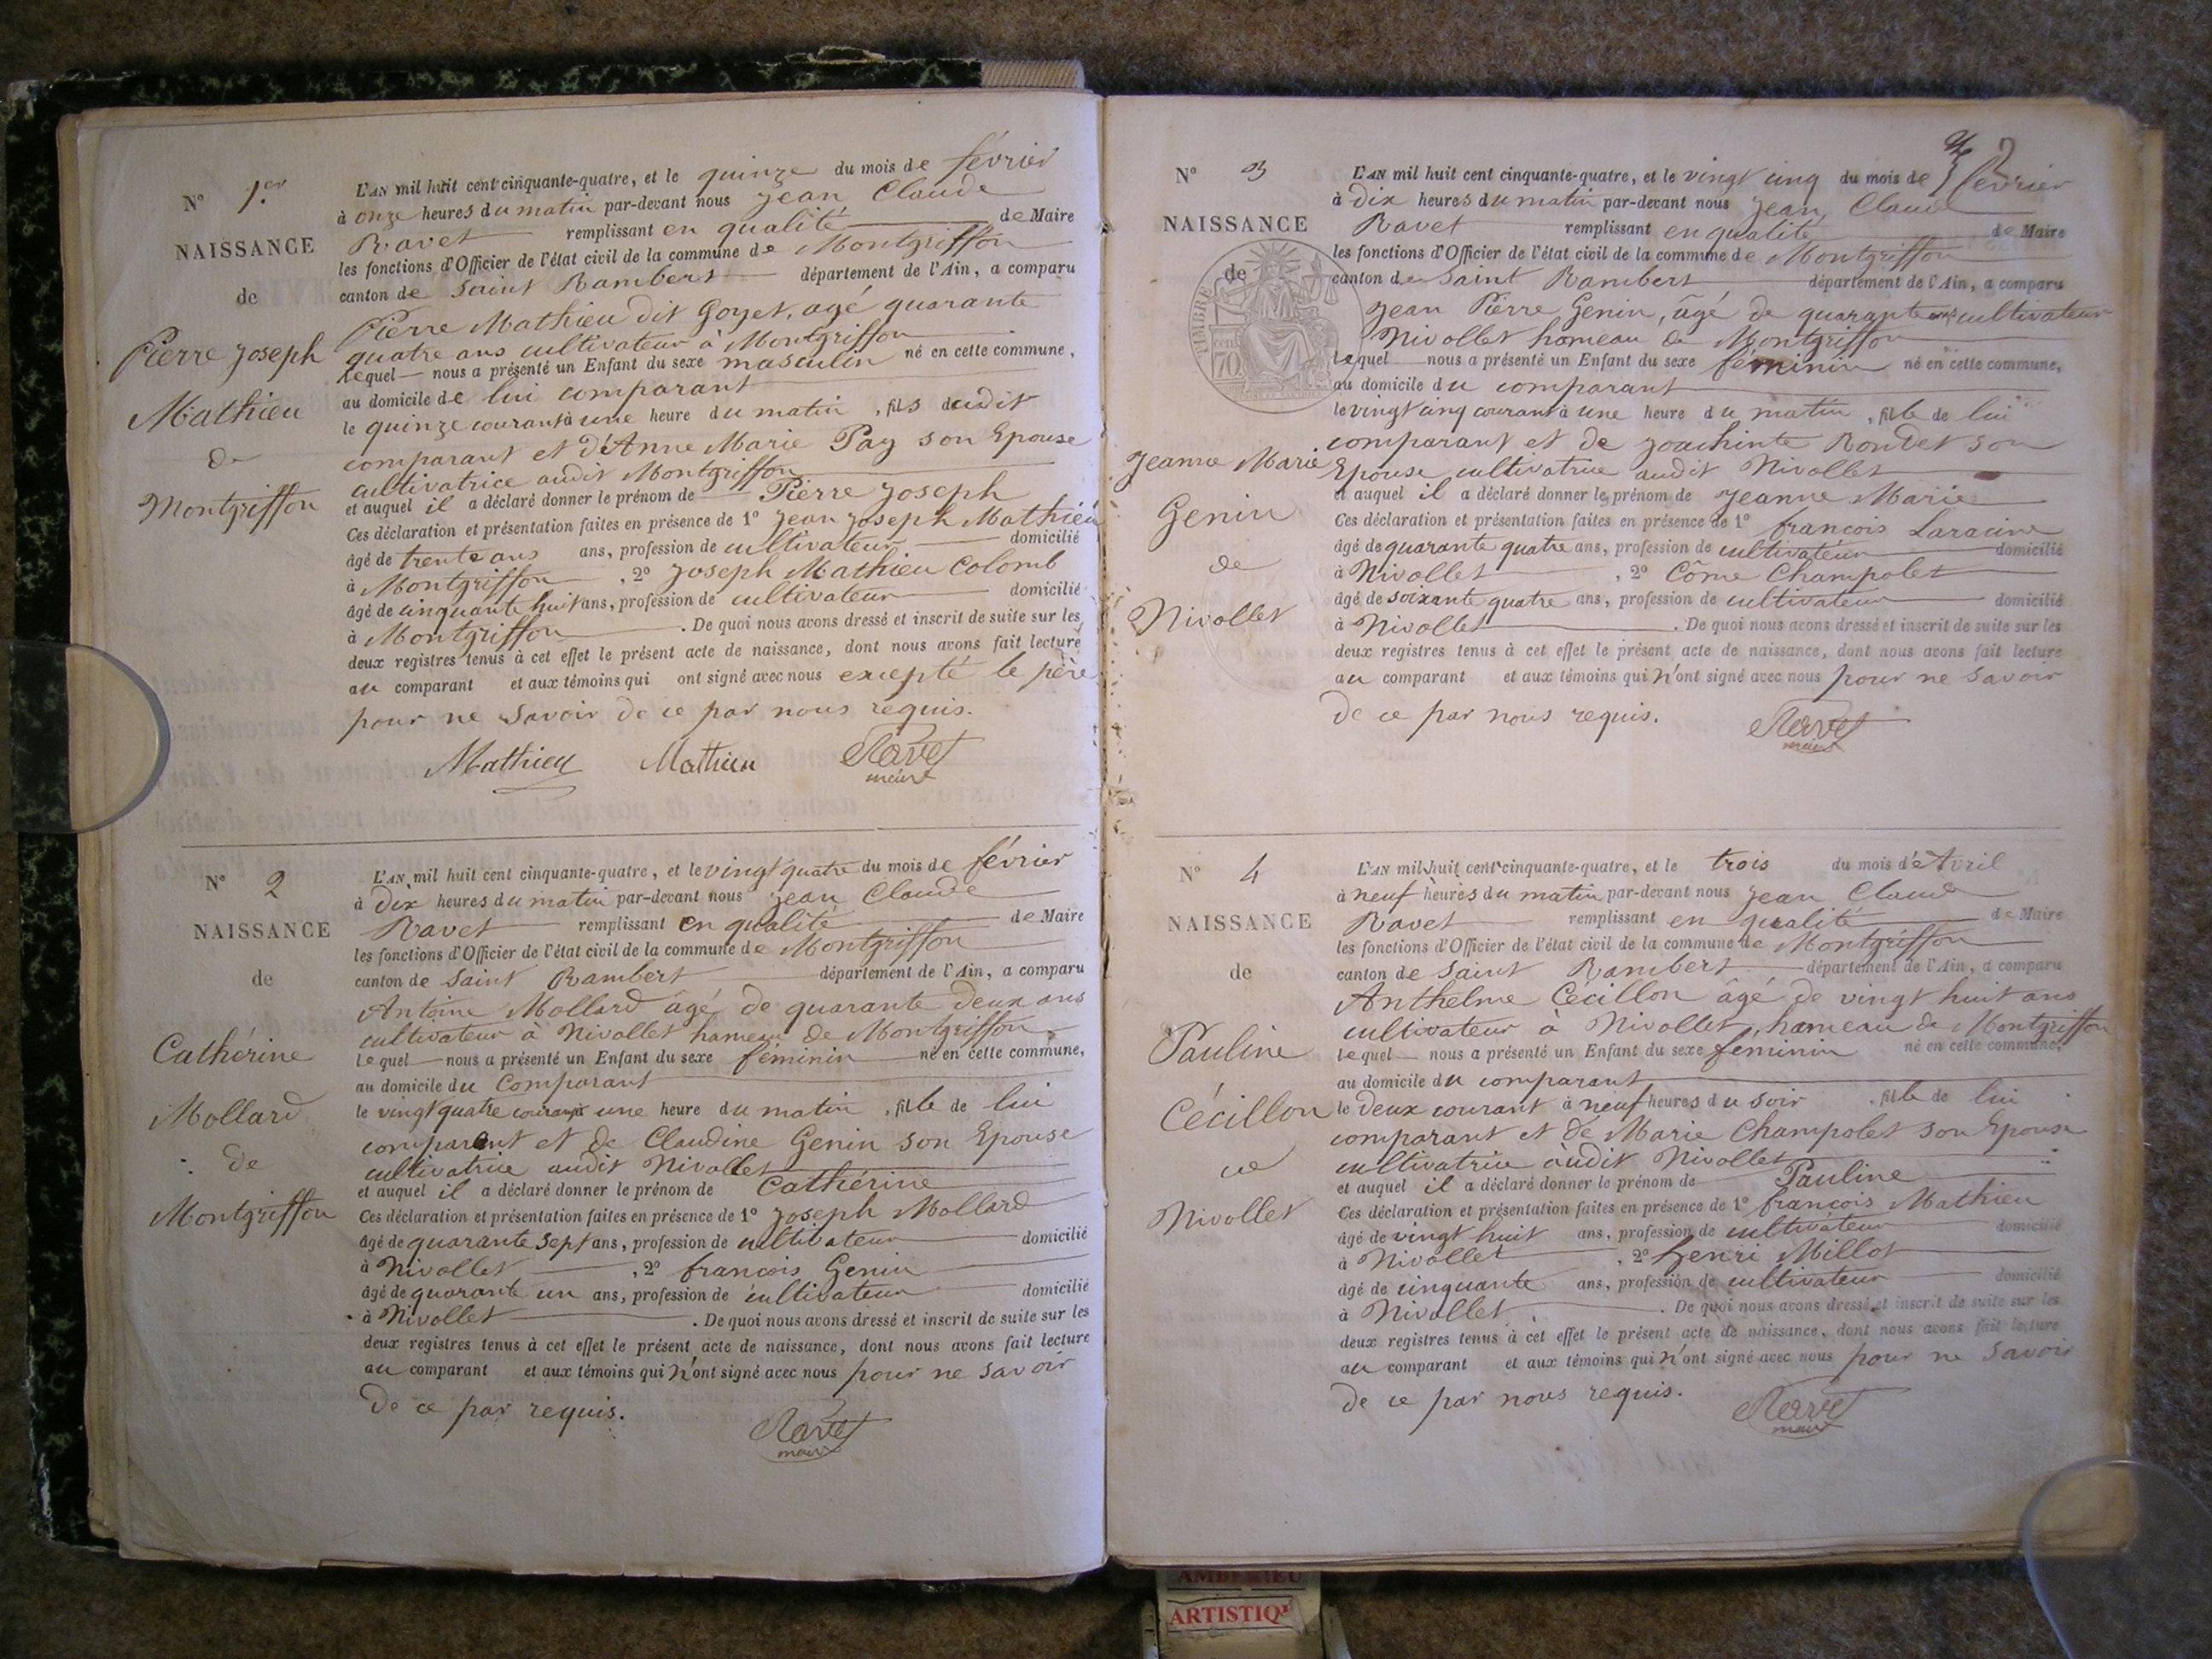 N° 1.er
NAISSANCE
de
Pierre Joseph
Mathieu
de
Montgriffon
L'AN mil huit cent cinquante-quatre, et le quinze du mois de février
à onze heures du matin par-devant nous Jean Claude
Ravet remplissant en qualité de Maire
les fonctions d'Officier de l'état civil de la commune de Montgriffon
canton de Saint Rambert département de l'Ain, a comparu
Pierre Mathieu dit Goyet, agé quarante
quatre ans cultivateur à Montgriffon
lequel nous a présenté un Enfant du sexe masculin né en cette commune,
au domicile de lui comparant
le quinze courant à une heure du matin, fils dudit
comparant et d'Anne Marie Pay son Epouse
cultivatrice audit Montgriffon
et auquel il a déclaré donner le prénom de Pierre Joseph
Ces déclaration et présentation faites en présence de 1° Jean Joseph Mathieu
âgé de trente ans ans, profession de cultivateur domicilié
à Montgriffon, 2° Joseph Mathieu Colomb
âgé de cinquante huit ans, profession de cultivateur domicilié
à Montgriffon. De quoi nous avons dressé et inscrit de suite sur les
deux registres tenus à cet effet le présent acte de naissance, dont nous avons fait lecture
au comparant et aux témoins qui ont signé avec nous excepté le père
pour ne savoir de ce par nous requis.
Mathieu Mathieu Ravet
maire
N° 2
NAISSANCE
de
Cathérine
Mollard
de
Montgriffon
L'AN mil huit cent cinquante-quatre, et le vingt quatre du mois de février
à dix heures du matin par-devant nous Jean Claude
Ravet remplissant en qualité de Maire
les fonctions d'Officier de l'état civil de la commune de Montgriffon
canton de Saint Rambert département de l'Ain, a comparu
Antoine Mollard âgé de quarante deux ans
cultivateur à Nivollet hameau de Montgriffon
lequel nous a présenté un Enfant du sexe féminin né en cette commune,
au domicile du Comparant
le vingt quatre courant à une heure du matin, fille de lui
comparant et de Claudine Genin son Epouse
cultivatrice audit Nivollet
et auquel il a déclaré donner le prénom de Cathérine
Ces déclaration et présentation faites en présence de 1° Joseph Mollard
âgé de quarante sept ans, profession de cultivateur domicilié
à Nivollet, 2° francois Genin
âgé de quarante un ans, profession de cultivateur domicilié
à Nivollet. De quoi nous avons dressé et inscrit de suite sur les
deux registres tenus à cet effet le présent acte de naissance, dont nous avons fait lecture
au comparant et aux témoins qui n'ont signé avec nous pour ne savoir
de ce par requis.
Ravet
maire
N° 3
NAISSANCE
de
TIMBRE
70
Jeanne Marie
Genin
de
Nivollet
2
L'AN mil huit cent cinquante-quatre, et le vingt cinq du mois de février
à dix heures du matin par-devant nous Jean Claude
Ravet remplissant en qualité de Maire
les fonctions d'Officier de l'état civil de la commune de Montgriffon
canton de Saint Rambert département de l'Ain, a comparu
Jean Pierre Genin, âgé de quarante ans cultivateur
Nivollet hameau de Montgriffon
lequel nous a présenté un Enfant du sexe féminin né en cette commune,
au domicile du comparant
le vingt cinq courant à une heure du matin, fille de lui
comparant et de Joachinte Rondet son
Epouse cultivatrice audit Nivollet
et auquel il a déclaré donner le prénom de Jeanne Marie
Ces déclaration et présentation faites en présence de 1° francois Laracine
âgé de quarante quatre ans, profession de cultivateur domicilié
à Nivollet, 2° Côme Champolet
âgé de soixante quatre ans, profession de cultivateur domicilié
à Nivollet. De quoi nous avons dressé et inscrit de suite sur les
deux registres tenus à cet effet le présent acte de naissance, dont nous avons fait lecture
au comparant et aux témoins qui n'ont signé avec nous pour ne savoir
de ce par nous requis.
Ravet
maire
N° 4
NAISSANCE
de
Pauline
Cécillon
de
Nivollet
L'AN mil huit cent cinquante-quatre, et le trois du mois d'Avril
à neuf heures du matin par-devant nous Jean Claude
Ravet remplissant en qualité de Maire
les fonctions d'Officier de l'état civil de la commune de Montgriffon
canton de Saint Rambert département de l'Ain, a comparu
Anthelme Cécillon âgé de vingt huit ans
cultivateur à Nivollet, hameau de Montgriffon
lequel nous a présenté un Enfant du sexe féminin né en cette commune,
au domicile du comparant
le deux courant à neuf heures du soir, fille de lui
comparant et de Marie Champolet son Epouse
cultivatrice audit Nivollet
et auquel il a déclaré donner le prénom de Pauline
Ces déclaration et présentation faites en présence de 1° francois Mathieu
âgé de vingt huit ans, profession de cultivateur domicilié
à Nivollet, 2° henri Millot
âgé de cinquante ans, profession de cultivateur domicilié
à Nivollet. De quoi nous avons dressé et inscrit de suite sur les
deux registres tenus à cet effet le présent acte de naissance, dont nous avons fait lecture
au comparant et aux témoins qui n'ont signé avec nous pour ne savoir
de ce par nous requis.
Ravet
maire
AMBERIEU
ARTISTIQ